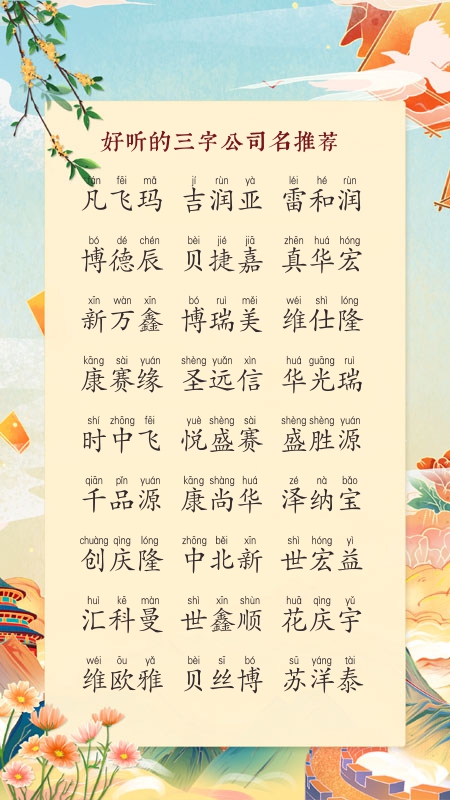 好听的三字公司名推荐
fán fēi mǎ jí rùn yà léi hé rùn
凡飞玛 吉润亚 雷和润
bó dé chén bèi jié jiā zhēn huá hóng
博德辰 贝捷嘉 真华宏
xīn wàn xīn bó ruì měi wéi shì lóng
新万鑫 博瑞美 维仕隆
kāng sài yuán shèng yuǎn xìn huá guāng ruì
康赛缘 圣远信 华光瑞
shí zhōng fēi yuè shèng sài shèng shèng yuán
时中飞 悦盛赛 盛胜源
qiān pǐn yuán kāng shàng huá zé nà bǎo
千品源 康尚华 泽纳宝
chuàng qìng lóng zhōng běi xīn shì hóng yì
创庆隆 中北新 世宏益
huì kē màn shì xīn shùn huā qìng yǔ
汇科曼 世鑫顺 花庆宇
wéi ōu yǎ bèi sī bó sū yáng tài
维欧雅 贝丝博 苏洋泰